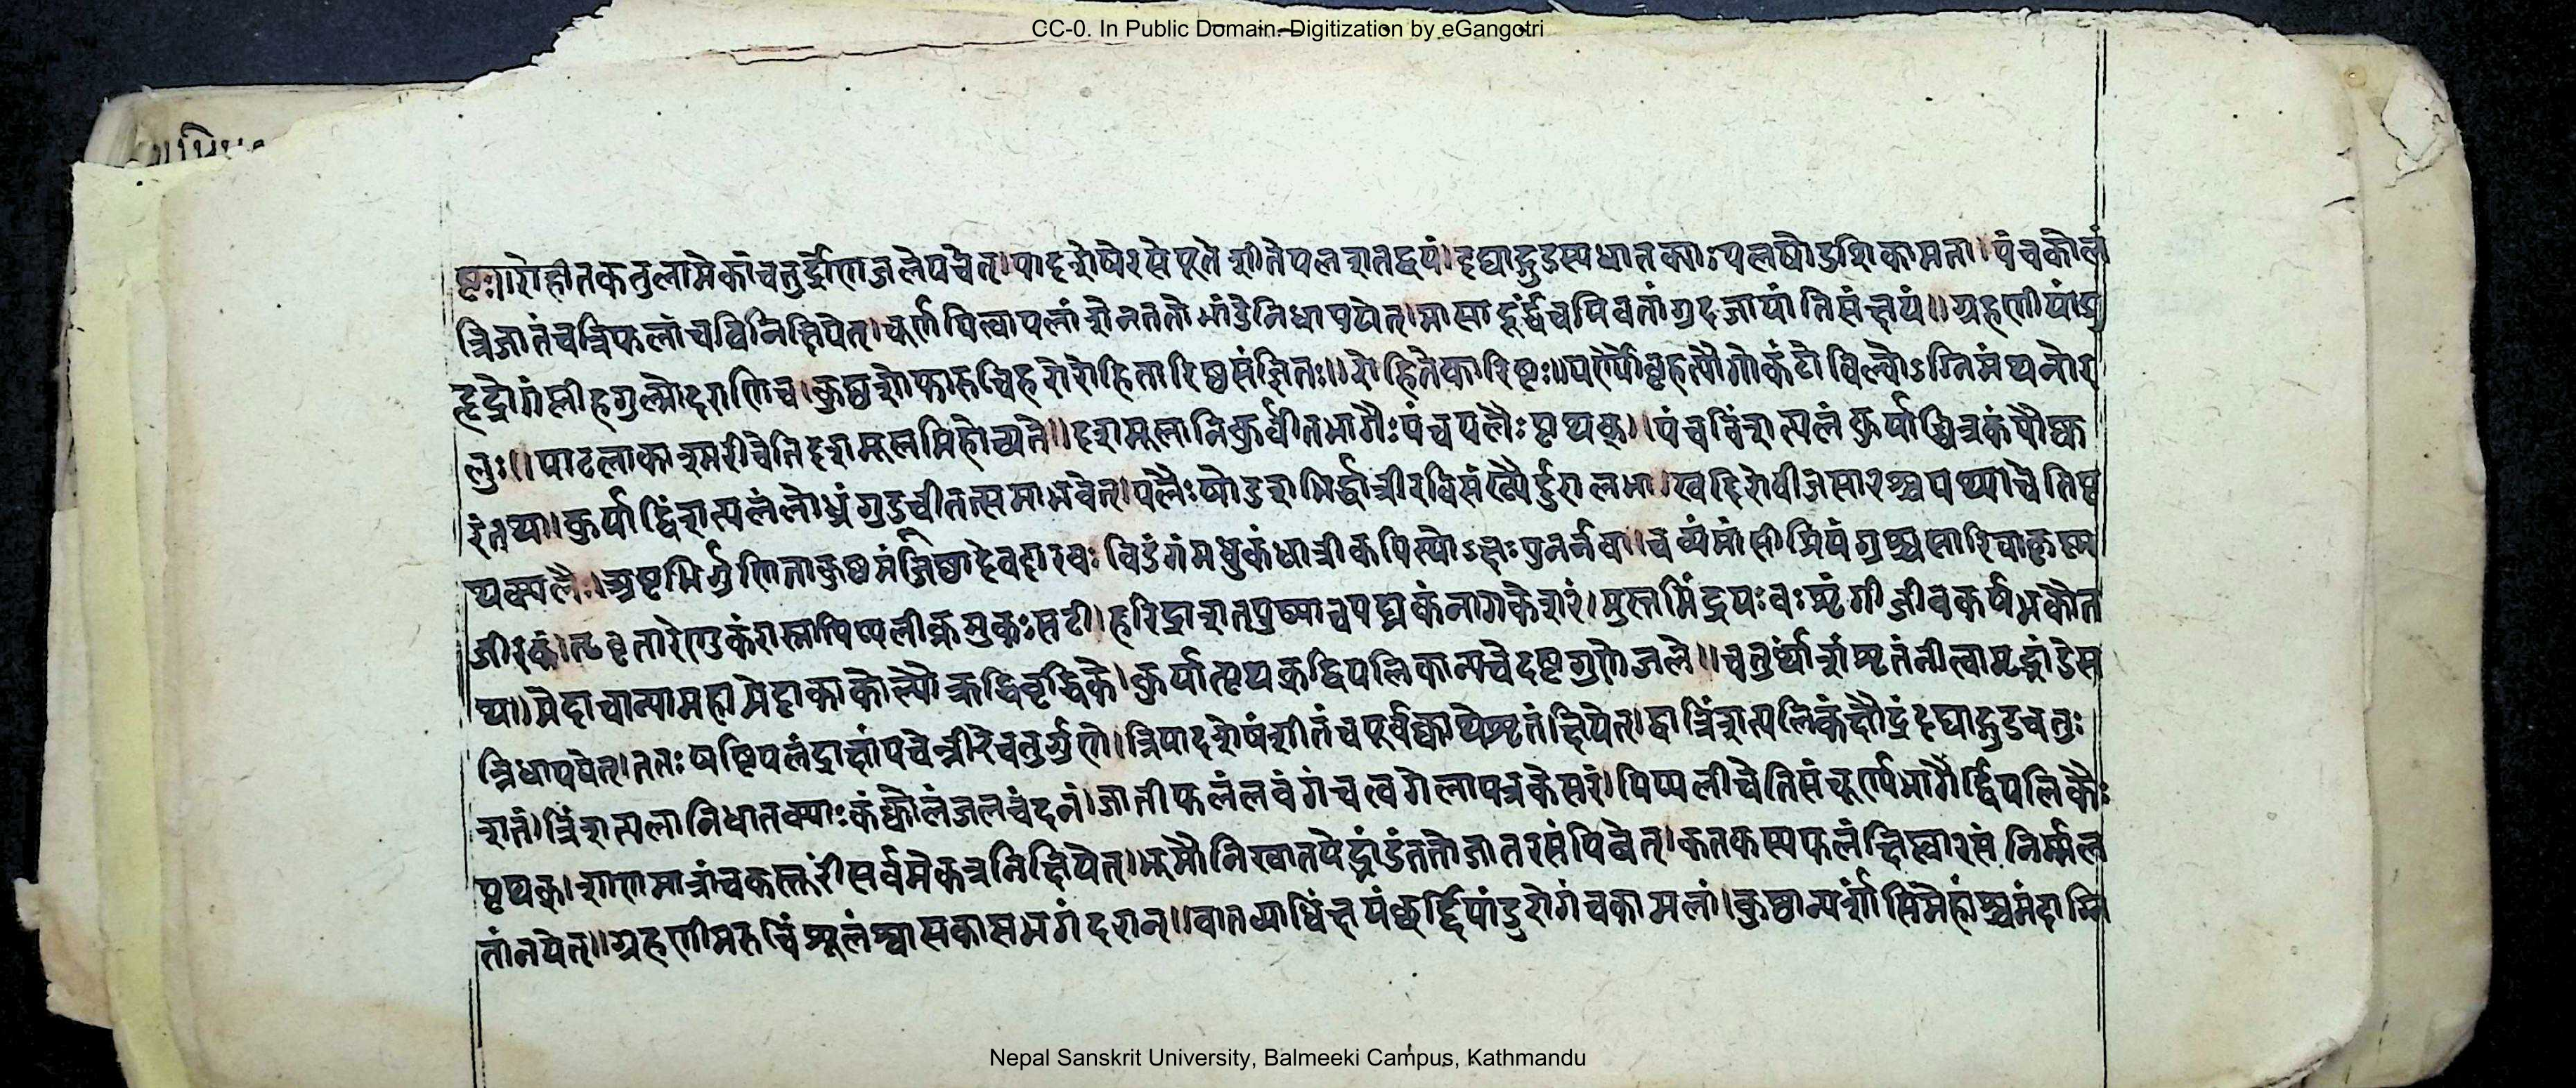 CC-0. In Public Domain. Digitization by eGangotri
ष्टः॥रोहीतकतुलामेकांचतुर्द्रोणेजलेपचेत्।पादशेषेरसेपूतेशीतेपलशतद्वयं।दद्याद्गुडस्यधातक्याःपलषोडशिकामता।पंचकोलं
त्रिजातंचत्रिफलांचविनिक्षिपेत्।चूर्णयित्वापलांशेनततोभांडेनिधापयेत्।मासादूर्द्ध्वंचपिबतांगुदजायांतिसंक्षयं॥ग्रहणीपांडु
हृद्रोगप्लीहगुल्मोदराणिच।कुष्ठशोफारुचिहरोरोहितारिष्टसंज्ञितः॥रोहितकारिष्टः॥पर्ण्यौबृहत्यौगोकंटोबिल्वोऽग्निमंथनोर
लुः॥पाटलाकाश्मरीचेतिदशमूलमिहोच्यते॥दशमूलानिकुर्वीतभागैःपंचपलैःपृथक्॥पंचविंशत्पलंकुर्याच्चित्रकंपौष्क
रंतथा।कुर्याद्विंशत्पलंलोध्रंगुडूचीतत्समाभवेत्।पलैःषोडशभिर्द्धात्रीरविसंख्यैर्दुरालभा।खदिरोबीजसारश्चपथ्याचेतिपृ
थक्पलैः।अष्टभिर्गुणिताकुष्ठमंजिष्ठादेवदारवः विडंगंमधुकंधात्रीकपित्थोऽक्षःपुनर्नवा।चव्यंमांसीप्रियंगुश्चसारिवाकृष्ण
जीरकं।त्रिवृतारेणुकंरास्नापिप्पलीक्रमुकःसटी।हरिद्राशतपुष्पाचपद्मकंनागकेशरं।मुस्तमिंद्रयवःशृंगीजीवकर्षभकौत
था॥मेदाचान्यामहामेदाकाकोल्यौऋद्धिवृद्धिके।कुर्यात्पृथक्द्विपलिकान्पचेदष्टगुणेजले॥चतुर्थांशंशृतंनीत्वामृद्भांडेस
न्निधापयेत्।ततःषष्टिपलंद्राक्षांपचेन्नीरेचतुर्गुणे।त्रिपादशेषंशीतंचपूर्वक्वाथेशृतंक्षिपेत्।द्वात्रिंशत्पलिकंक्षौद्रंदद्याद्गुडचतुः
शतं।त्रिंशत्पलानिधातक्याःकंक्कोलंजलचंदनं।जातीफलंलवंगंचत्वगेलापत्रकेसरं।पिप्पलीचेतिसंचूर्ण्यभागैर्द्विपलिकैः
पृथक्।शाणमात्रांचकस्तूरींसर्वमेकत्रनिक्षिपेत्।भूमौनिखातयेद्भांडंततोजातरसंपिबेत्।कतकस्यफलंक्षिप्त्वारसंनिर्मल
तांनयेत्॥ग्रहणीमरुचिंशूलंश्वासकासभगंदरान्॥वातव्याधिंक्षयंछर्द्दिंपांडुरोगंचकामलां।कुष्ठान्यर्शांसिमेहांश्चमंदाग्नि
Nepal Sanskrit University, Balmeeki Campus, Kathmandu